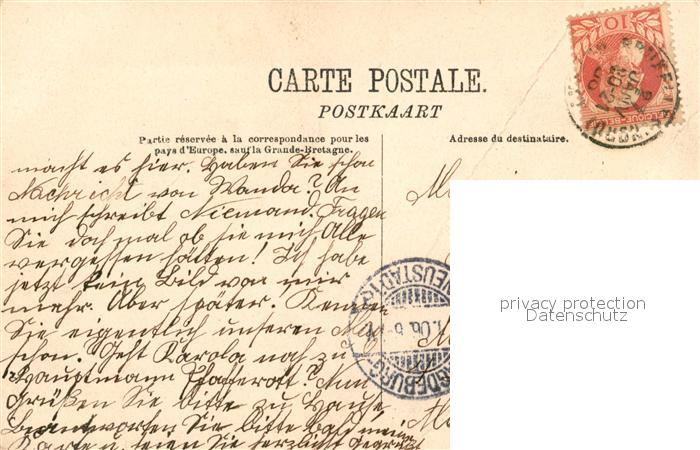 CARTE POSTALE.
POSTKAART
Partie réservée à la correspondance pour les
pays d'Europe, sauf la Grande-Bretagne.
Adresse du destinataire.
macht es hier. Haben Sie schon
Nachricht von Wanda? An
mich schreibt Niemand. Fragen
Sie doch mal ob sie mich Alle
vergessen hätten! Ich habe
jetzt kein Bild von mir
mehr. Aber später. Kennen
Sie eigentlich unseren
schon. Geht Karola noch zu
Hauptmann Pfafferott? Nun
Grüßen Sie bitte zu Hause
Beantworten Sie bitte bald meine
Karte u. seien Sie herzlichst gegrüßt
10
NEUSTADT
privacy protection
Datenschutz